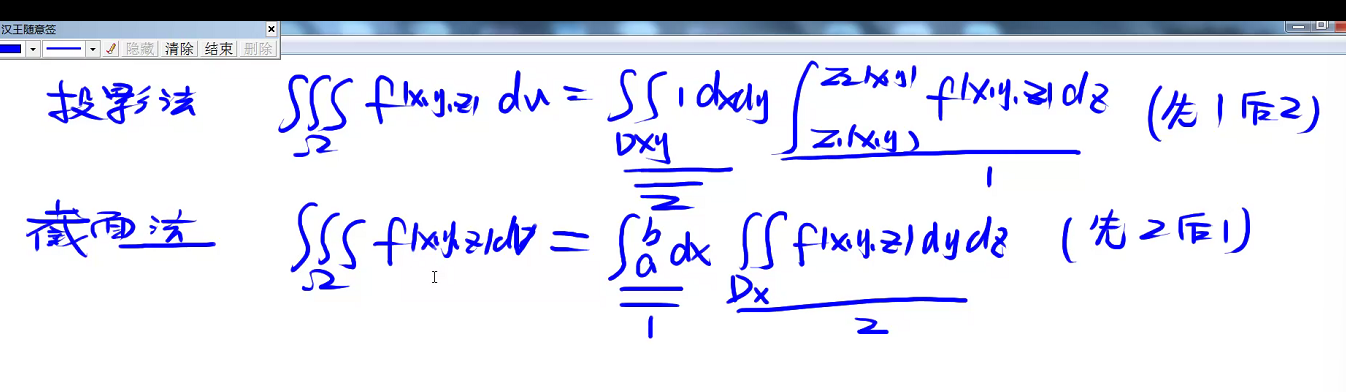 汉王随意签
隐藏 清除 结束 删除
投影法 ∭_Ω f(x,y,z) dv = ∬_{Dxy} 1 dxdy ∫_{z₁(x,y)}^{z₂(x,y)} f(x,y,z) dz (先1后2)
2 1
截面法 ∭_Ω f(x,y,z) dV = ∫_a^b dx ∬_{Dx} f(x,y,z) dy dz (先2后1)
1 2